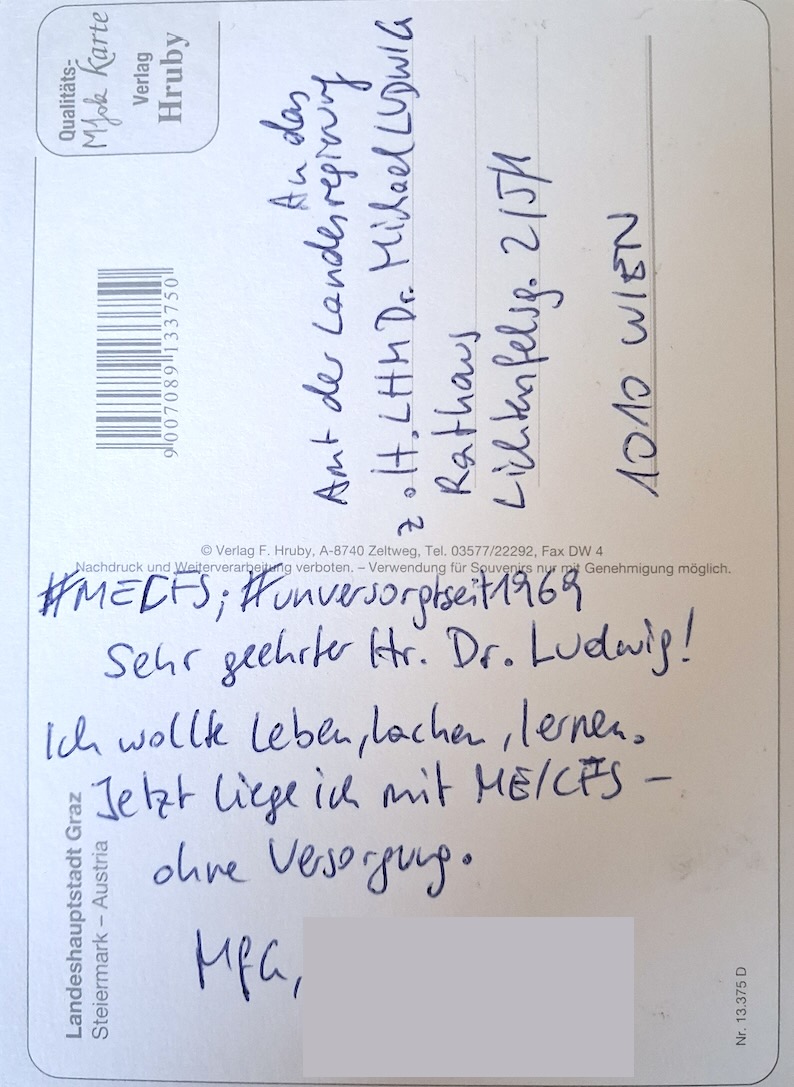 Qualitäts-
Mfok Karte
Verlag
Hruby
9 007089 133750
An das
Amt der Landesregirung
z.H. LHM Dr. Michael LUDWIG
Rathaus
Lichtenfelsg. 2/5/1
1010 WIEN
© Verlag F. Hruby, A-8740 Zeltweg, Tel. 03577/22292, Fax DW 4
Nachdruck und Weiterverarbeitung verboten. – Verwendung für Souvenirs nur mit Genehmigung möglich.
#MECFS; #unversorgtseit1969
Sehr geehrter Hr. Dr. Ludwig!
Ich wollte leben, lachen, lernen.
Jetzt liege ich mit ME/CFS –
ohne Versorgung.
MfG,
Landeshauptstadt Graz
Steiermark – Austria
Nr. 13.375 D